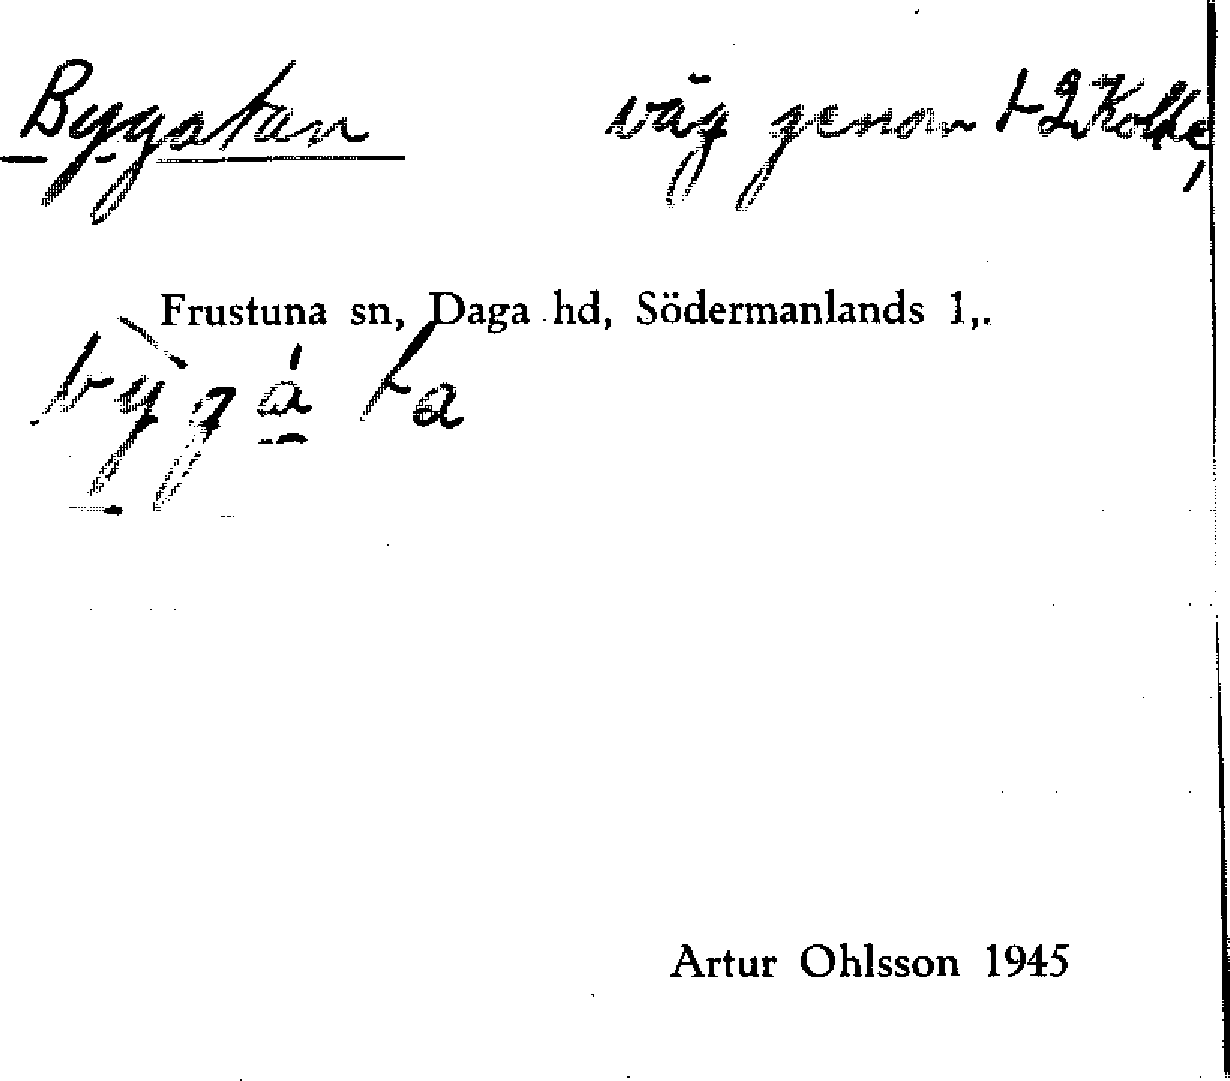 Bygatan väg genom
Frustuna sn, Daga hd, Södermanlands l,.
bỳgáta
Artur Ohlsson 1945